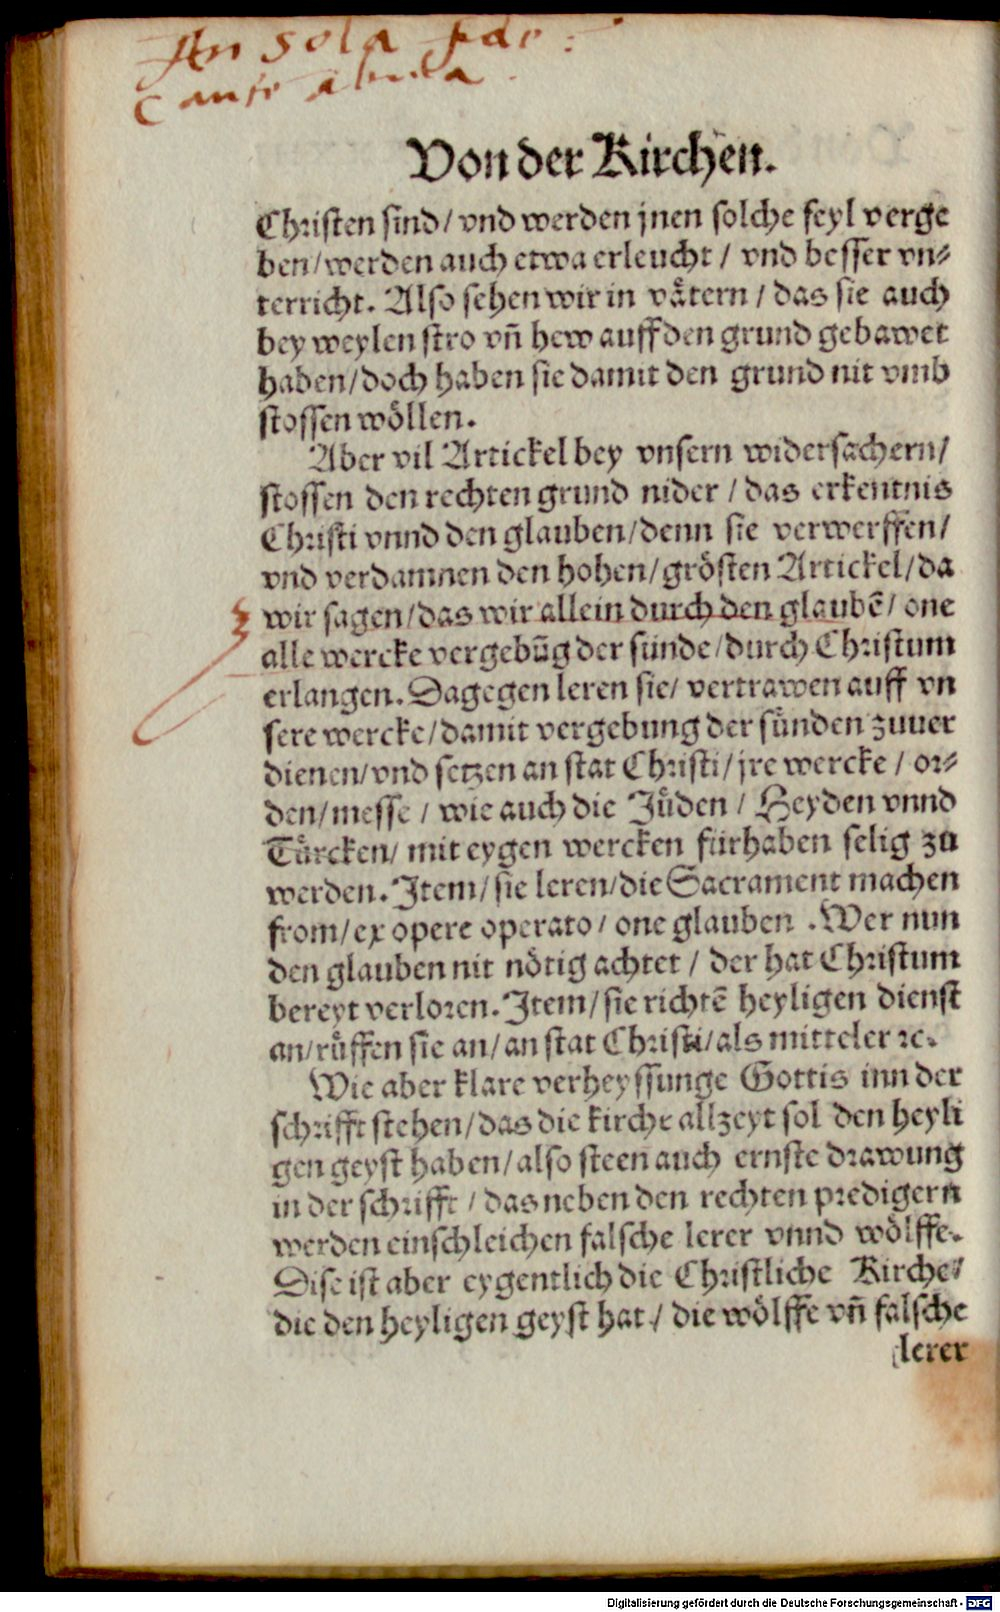 An sola fide:
Von der Kirchen.
Christen sind/ vnd werden jnen solche feyl verge
ben/werden auch etwa erleucht/ vnd besser vn⸗
terricht. Also sehen wir in vätern/ das sie auch
bey weylen stro vñ hew auff den grund gebawet
haben/doch haben sie damit den grund nit vmb
stossen wöllen.
Aber vil Artickel bey vnsern widersachern/
stossen den rechten grund nider/ das erkentnis
Christi vnnd den glauben/denn sie verwerffen/
vnd verdamnen den hohen/grösten Artickel/da
wir sagen/das wir allein durch den glaubē/ one
alle wercke vergebūg der sünde/durch Christum
erlangen. Dagegen leren sie/ vertrawen auff vn
sere wercke/damit vergebung der sünden zuuer
dienen/vnd setzen an stat Christi/jre wercke/ or⸗
den/messe/ wie auch die Jüden/ Heyden vnnd
Türcken/ mit eygen wercken fürhaben selig zů
werden. Item/sie leren/die Sacrament machen
from/ex opere operato/ one glauben. Wer nun
den glauben nit nötig achtet/ der hat Christum
bereyt verloren. Item/sie richtē heyligen dienst
an/rüffen sie an/an stat Christi/als mitteler ꝛc.
Wie aber klare verheyssunge Gottis inn der
schrifft stehen/das die kirche allzeyt sol den heyli
gen geyst haben/also steen auch ernste drawung
in der schrifft/das neben den rechten predigern
werden einschleichen falsche lerer vnnd wölffe.
Dise ist aber eygentlich die Christliche Kirche/
die den heyligen geyst hat/ die wölffe vñ falsche
lerer
Digitalisierung gefördert durch die Deutsche Forschungsgemeinschaft - DFG